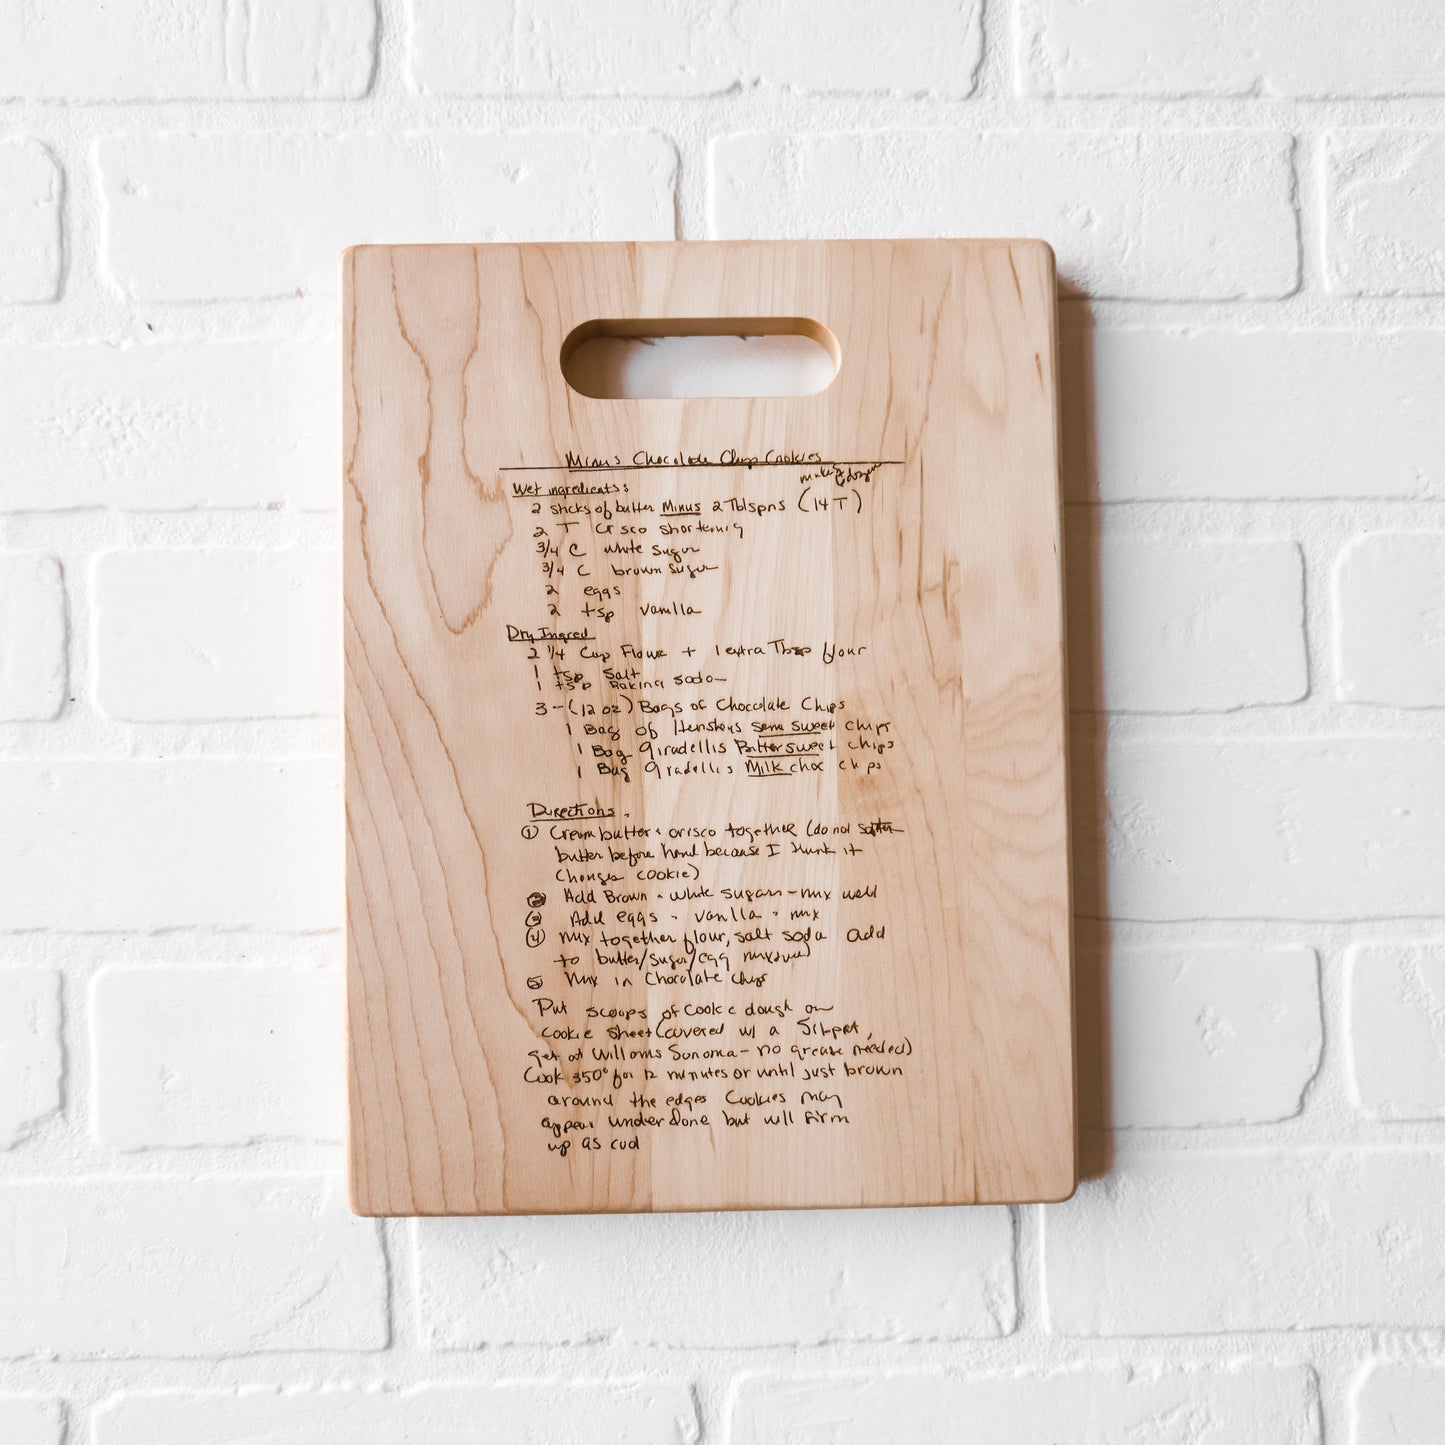 Mimi's Chocolate Chip Cookies
makes dozen
Wet ingredients:
2 sticks of butter Minus 2 Tblspns (14 T)
2 T Crisco shortening
3/4 C white sugar
3/4 C brown sugar
2 eggs
2 tsp vanilla
Dry Ingred
2 1/4 Cup Flour + 1 extra Tbsp flour
1 tsp Salt
1 tsp Baking soda
3-(12 oz) Bags of Chocolate Chips
1 Bag of Hersheys semi sweet chips
1 Bag Giradellis Bittersweet chips
1 Bag Giradellis Milk choc chips
Directions.
① Cream butter + crisco together (do not soften
butter before hand because I think it
changes cookie)
② Add Brown + white sugars - mix well
③ Add eggs + vanilla + mix
④ mix together flour, salt soda add
to butter/sugar/egg mixture
⑤ Mix in Chocolate chips
Put scoops of cookie dough on
cookie sheet (covered w/ a Silpat,
get at Williams Sonoma - no grease needed)
Cook 350° for 12 minutes or until just brown
around the edges Cookies may
appear underdone but will firm
up as cool